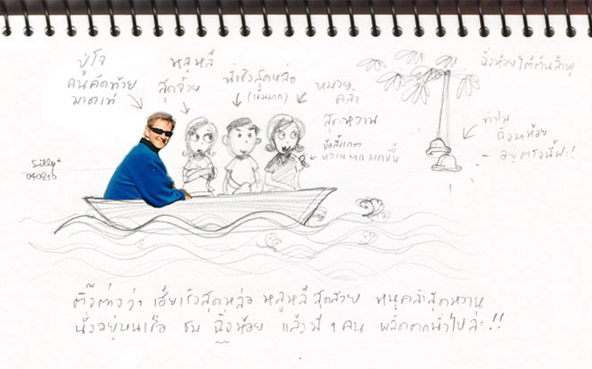 ปู่โจ
คนคัดท้าย
มาดเท่
หลูหลี
สุดจ๋วย
พี่เร้งสุดหล่อ
หมวย
คล้ำ
สุดหวาน
ฉิ่งห้อยใต้ต้นลำพู
ทำไม
ฉิ่งมาห้อย
อยู่ตรงนี้ฟะ!!
ติ๊ต่างว่า เฮียเร้งสุดหล่อ หลูหลีสุดสวย หนูคล้ำสุดหวาน
นั่งอยู่บนเรือ ชน ฉิ่งห้อย แล้วมี 1 คน พลัดตกน้ำไปล่ะ!!